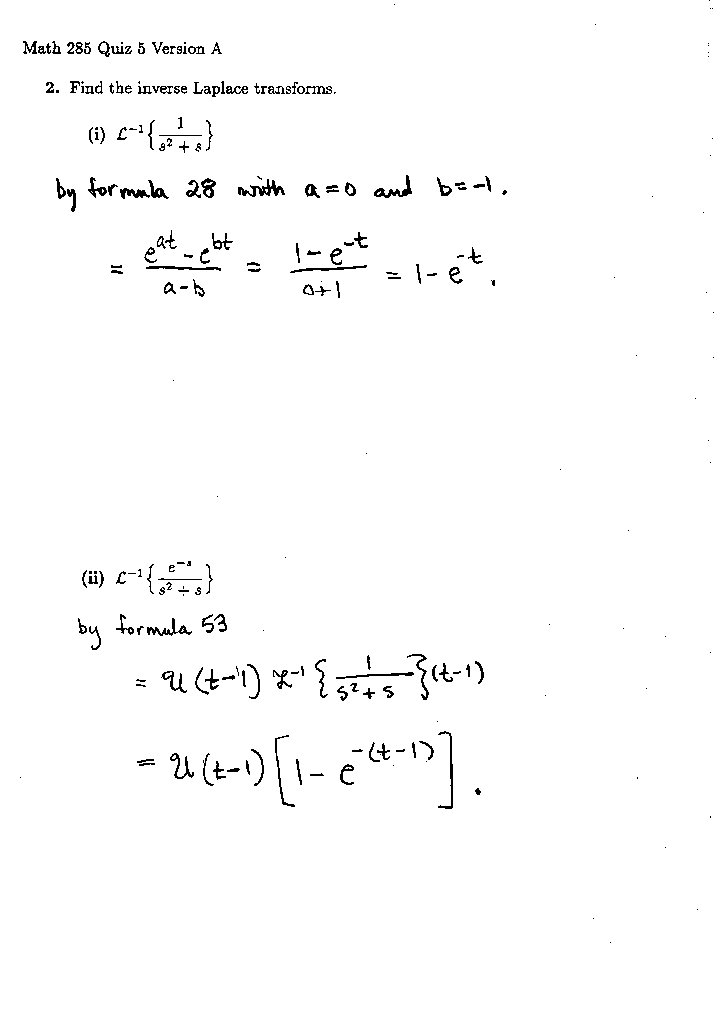 Math 285 Quiz 5 Version A
2. Find the inverse Laplace transforms.
(i) ℒ⁻¹{1/(s² + s)}
by formula 28 with a=0 and b=-1.
= (e^{at} - e^{bt})/(a-b) = (1-e^{-t})/(0+1) = 1-e^{-t}.
(ii) ℒ⁻¹{e^{-s}/(s² + s)}
by formula 53
= 𝒰(t-1) ℒ⁻¹{1/(s²+s)}(t-1)
= 𝒰(t-1)[1 - e^{-(t-1)}].